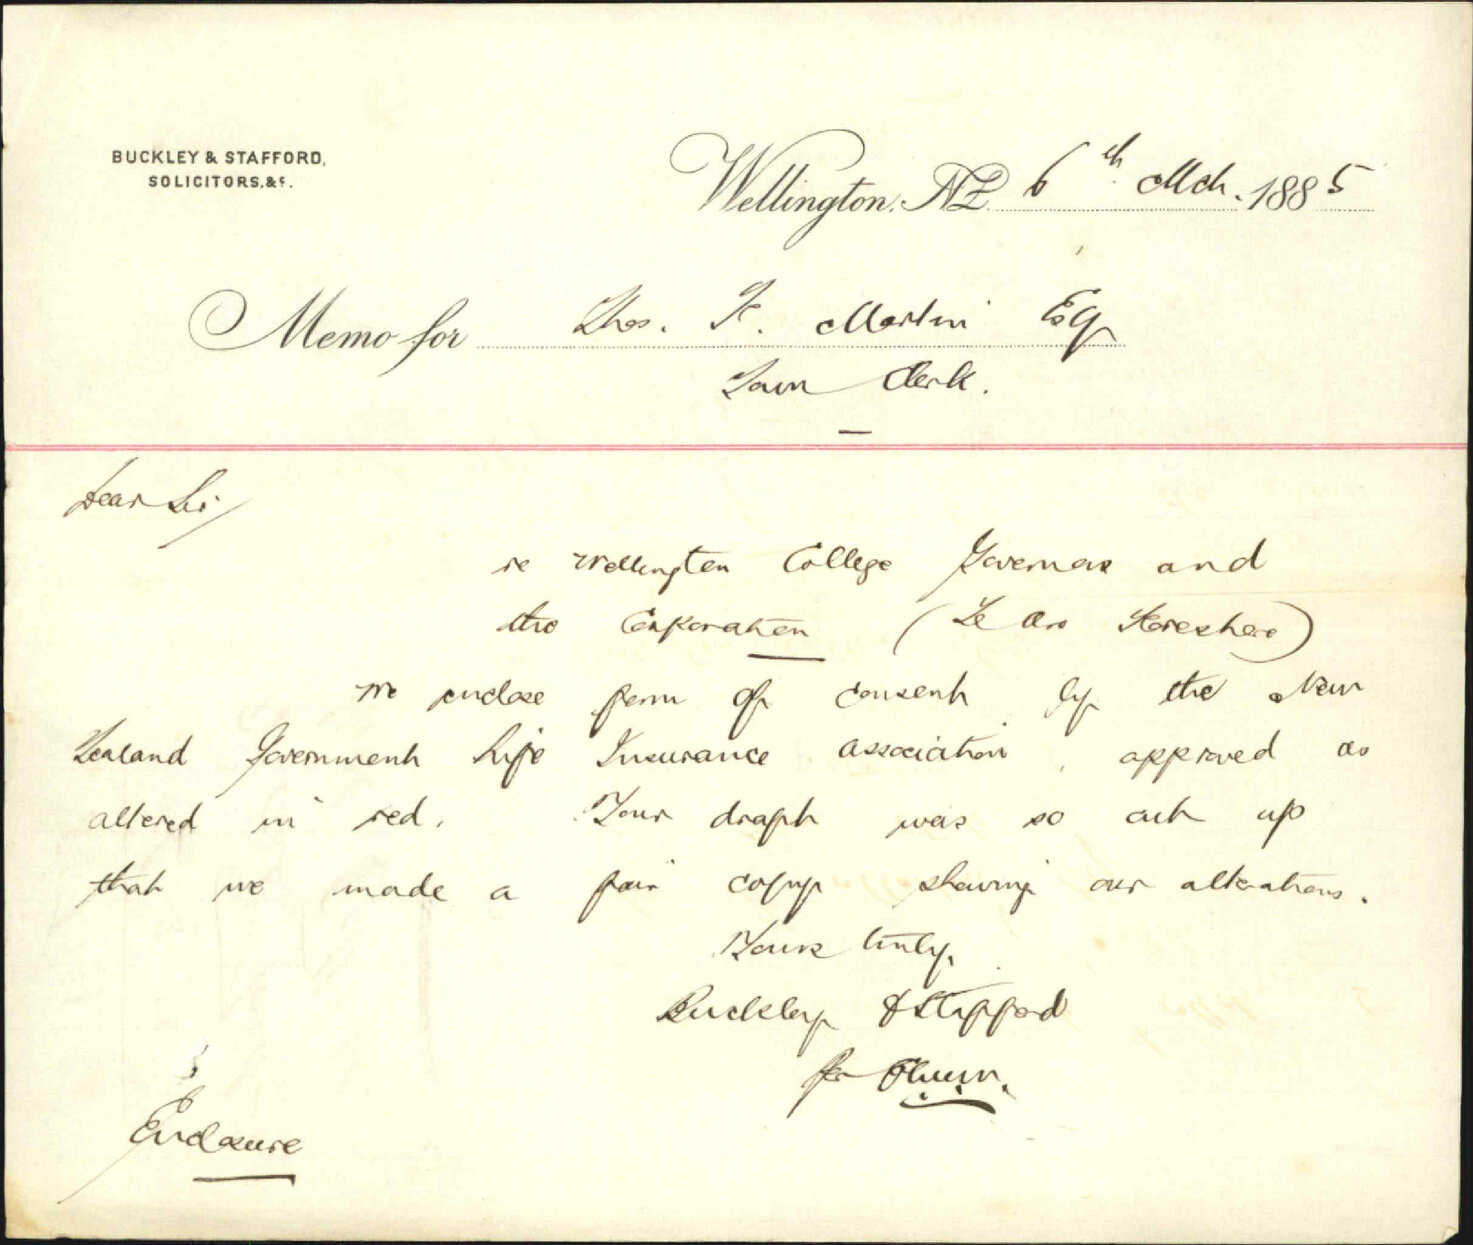 BUCKLEY & STAFFORD,
SOLICITORS, &c.
Wellington, NZ 6th Mch. 1885
Memo for Thos. F. Martin Esq
Town Clerk.
Dear Sir/
re Wellington College Governors and
the Corporation (Te Aro Foreshore)
We enclose form of consent by the New
Zealand Government Life Insurance Association, approved as
altered in red. Your draft was so cut up
that we made a fair copy shewing our alterations.
Yours truly,
Buckley & Stafford
per
Enclosure